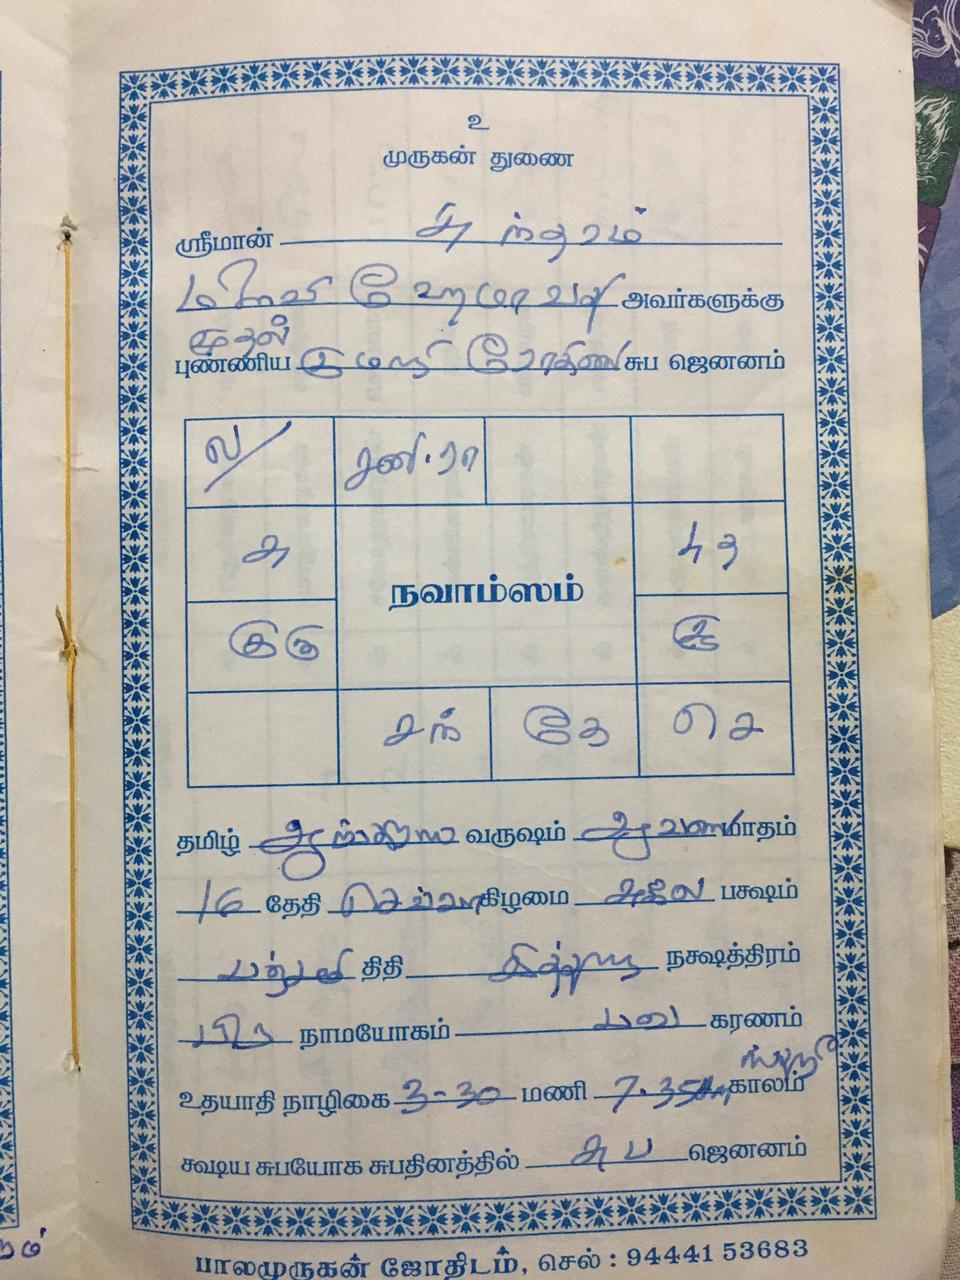 உ
முருகன் துணை
ஸ்ரீமான் சுந்தரம்
மனைவி ஹேமாவதி அவர்களுக்கு
முதல்
புண்ணிய குமாரி ரோகிணி சுப ஜெனனம்
ல/ சனி.ரா
சு புத
குரு
நவாம்ஸம்
சந் கே செ
தமிழ் வருஷம் ஆவணி மாதம்
16 தேதி செவ்வாய்கிழமை பக்ஷம்
திதி நக்ஷத்திரம்
நாமயோகம் கரணம்
உதயாதி நாழிகை 3-30 மணி 7.35 காலம்
கூடிய சுபயோக சுபதினத்தில் சுப ஜெனனம்
பாலமுருகன் ஜோதிடம், செல் : 94441 53683